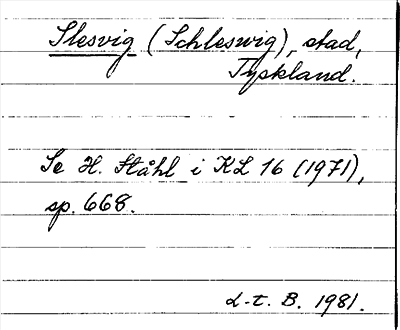 Slesvig (Schleswig), stad,
Tyskland.
Se H. Ståhl i KL 16 (1971),
sp. 668.
L-t. B. 1981.